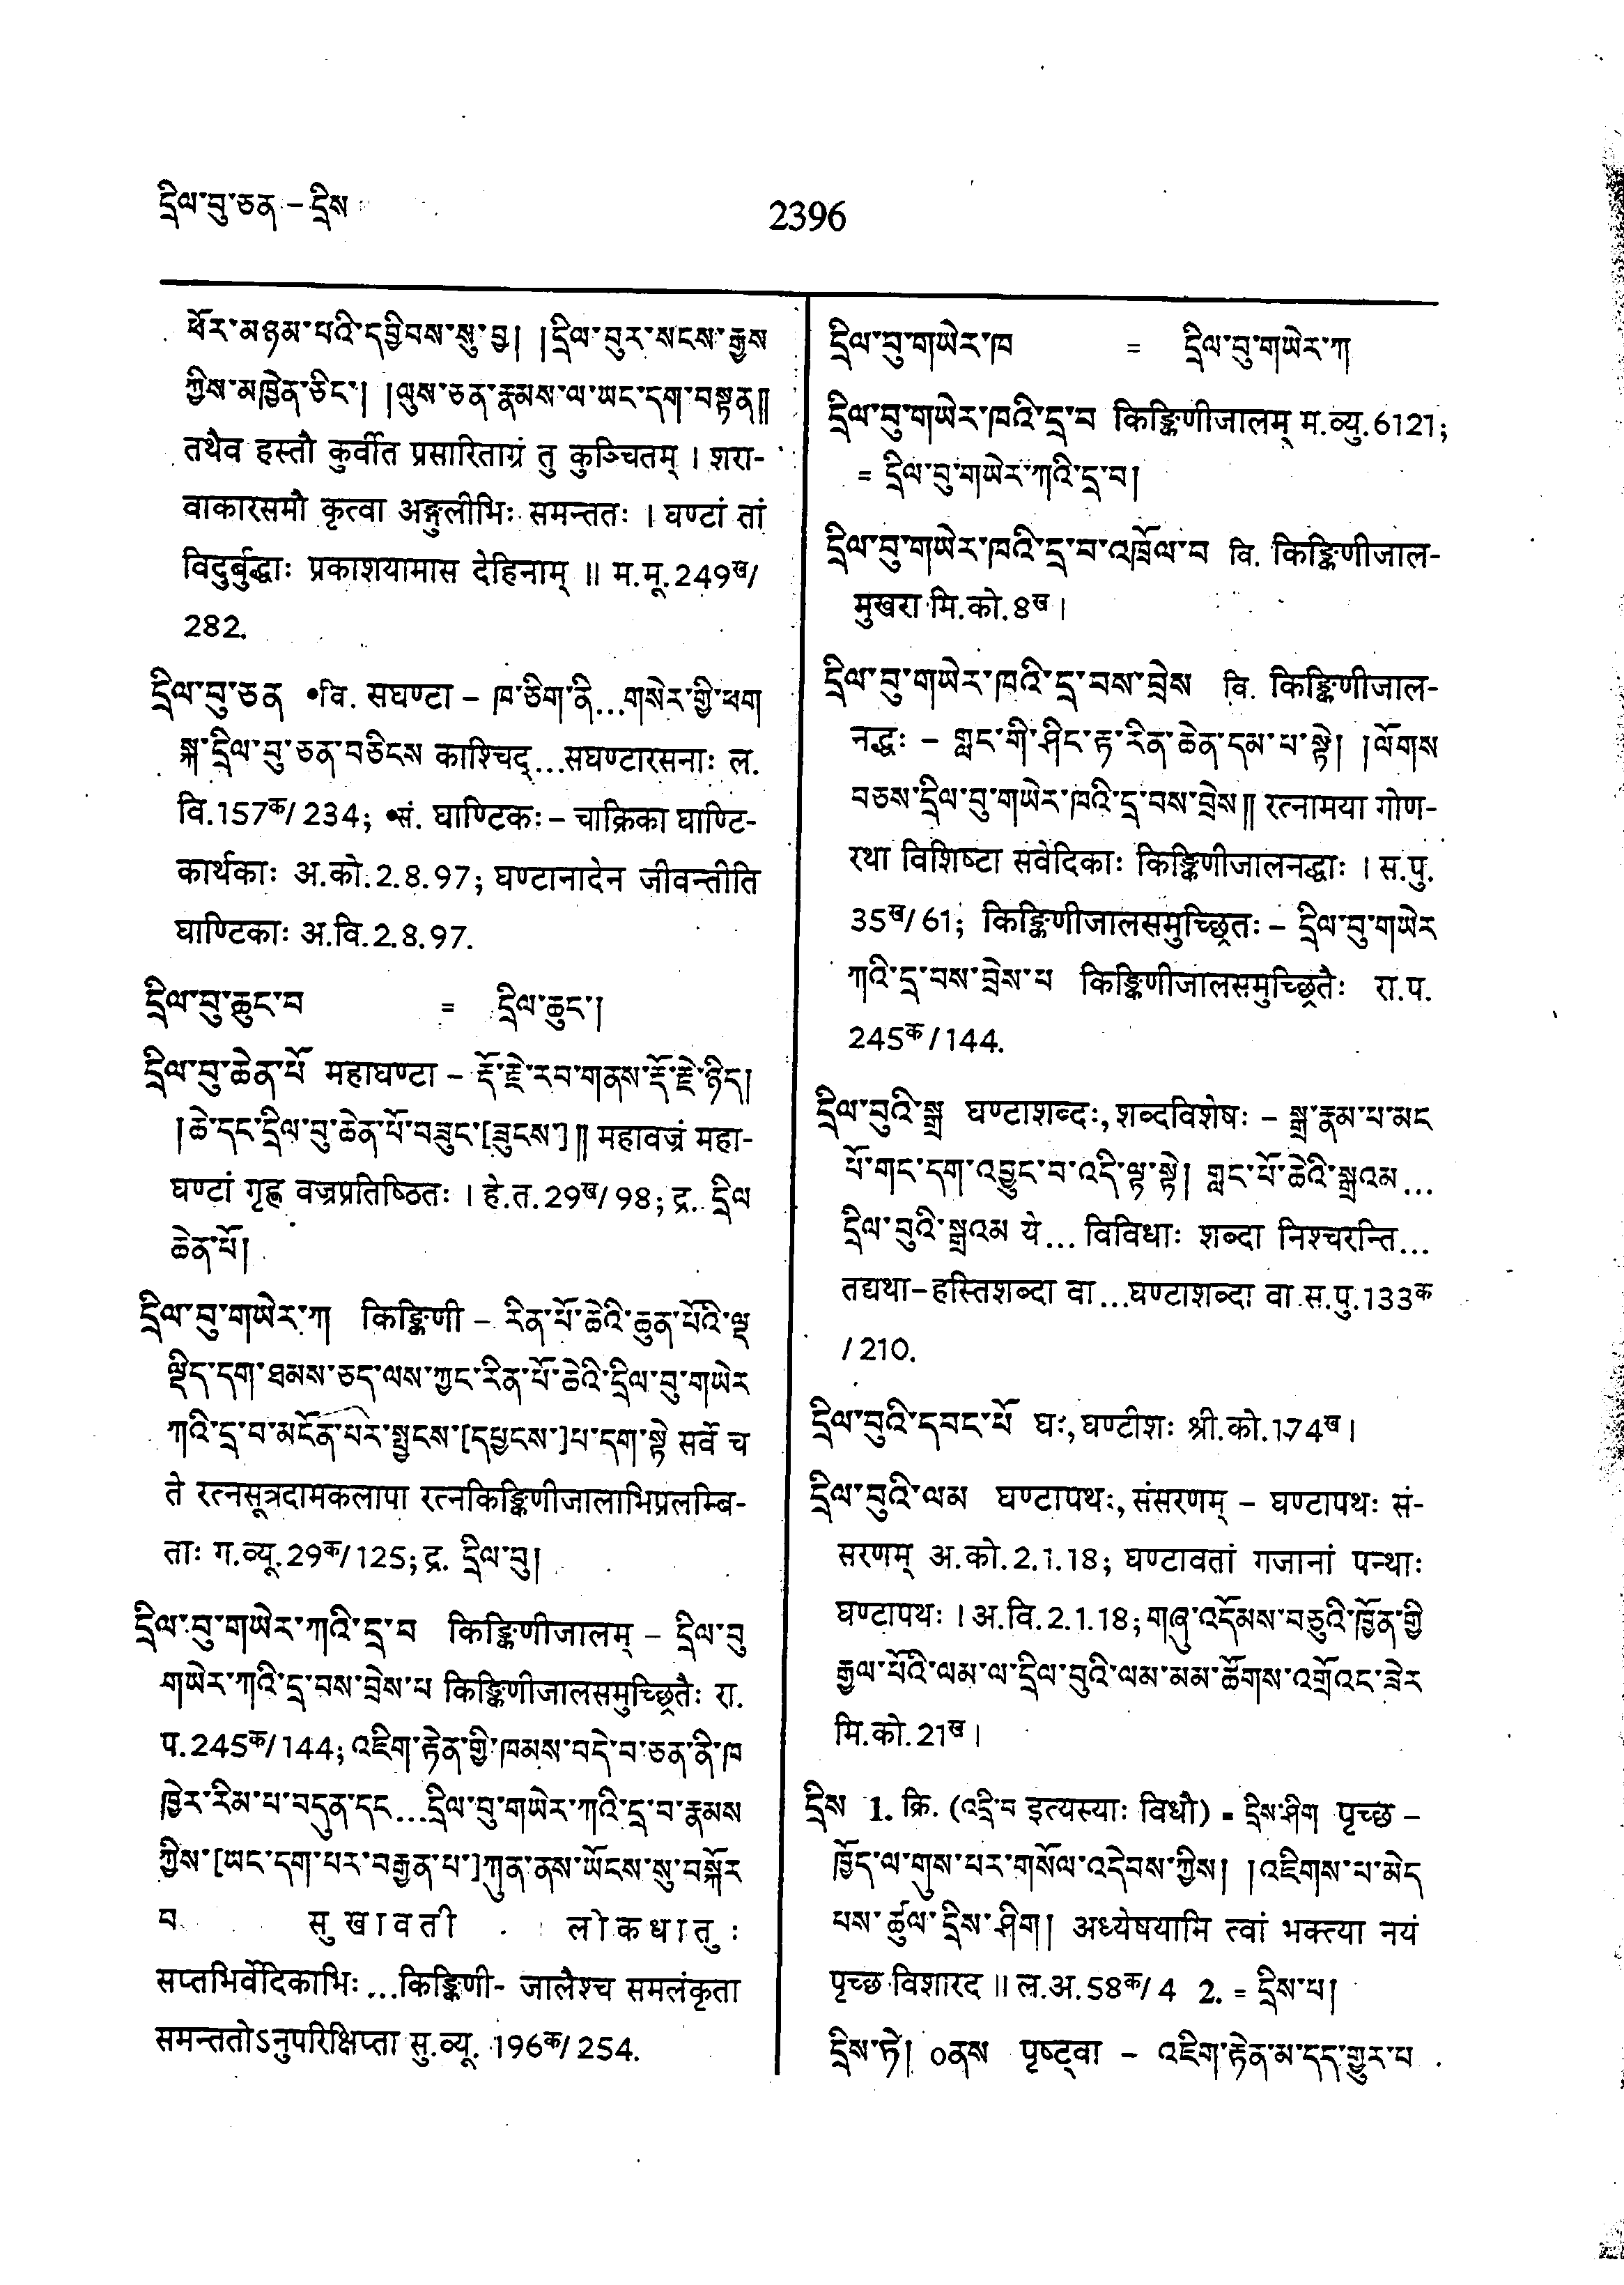 དྲིལ་བུ་ཅན – དྲིས
2396
ཕོར་མཉམ་པའི་དབྱིབས་སུ་བྱ། །དྲིལ་བུར་སངས་རྒྱས
ཀྱིས་མཁྱེན་ཅིང་། །ལུས་ཅན་རྣམས་ལ་ཡང་དག་བསྟན༎
तथैव हस्तौ कुर्वीत प्रसारिताग्रं तु कुञ्चितम् । शरा-
वाकारसमौ कृत्वा अङ्गुलीभिः समन्ततः । घण्टां तां
विदुर्बुद्धाः प्रकाशयामास देहिनाम् ॥ म.मू.249ख/
282.
དྲིལ་བུ་ཅན •वि. सघण्टा – ཁ་ཅིག་ནི...གསེར་གྱི་ཕག
སྐ་དྲིལ་བུ་ཅན་བཅིངས काश्चिद्...सघण्टारसनाः ल.
वि.157क/234; •सं. घाण्टिकः – चाक्रिका घाण्टि-
कार्थकाः अ.को.2.8.97; घण्टानादेन जीवन्तीति
घाण्टिकाः अ.वि.2.8.97.
དྲིལ་བུ་ཆུང་བ = དྲིལ་ཆུང་།
དྲིལ་བུ་ཆེན་པོ महाघण्टा – རྡོ་རྗེ་རབ་གནས་རྡོ་རྗེ་ཉིད།
།ཆེ་དང་དྲིལ་བུ་ཆེན་པོ་བཟུང་[ཟུངས་]༎ महावज्रं महा-
घण्टां गृह्ण वज्रप्रतिष्ठितः । हे.त.29ख/98; द्र. དྲིལ
ཆེན་པོ།
དྲིལ་བུ་གཡེར་ཀ किङ्किणी – རིན་པོ་ཆེའི་ཆུན་པོའི་ལྡ
ལྡིད་དག་ཐམས་ཅད་ལས་ཀྱང་རིན་པོ་ཆེའི་དྲིལ་བུ་གཡེར
ཀའི་དྲ་བ་མངོན་པར་སྤྱངས་[དཔྱངས་]པ་དག་སྟེ सर्वे च
ते रत्नसूत्रदामकलापा रत्नकिङ्किणीजालाभिप्रलम्बि-
ताः ग.व्यू.29क/125; द्र. དྲིལ་བུ།
དྲིལ་བུ་གཡེར་ཀའི་དྲ་བ किङ्किणीजालम् – དྲིལ་བུ
གཡེར་ཀའི་དྲ་བས་བྲེས་པ किङ्किणीजालसमुच्छ्रितैः रा.
प.245क/144; འཇིག་རྟེན་གྱི་ཁམས་བདེ་བ་ཅན་ནི་ཁ
ཁྱེར་རིམ་པ་བདུན་དང...དྲིལ་བུ་གཡེར་ཀའི་དྲ་བ་རྣམས
ཀྱིས་[ཡང་དག་པར་བརྒྱན་པ་]ཀུན་ནས་ཡོངས་སུ་བསྐོར
བ सुखावती लोकधातुः
सप्तभिर्वेदिकाभिः...किङ्किणी- जालैश्च समलंकृता
समन्ततोऽनुपरिक्षिप्ता सु.व्यू. 196क/254.
དྲིལ་བུ་གཡེར་ཁ = དྲིལ་བུ་གཡེར་ཀ།
དྲིལ་བུ་གཡེར་ཁའི་དྲ་བ किङ्किणीजालम् म.व्यु.6121;
= དྲིལ་བུ་གཡེར་ཀའི་དྲ་བ།
དྲིལ་བུ་གཡེར་ཁའི་དྲ་བ་འཁྲོལ་བ वि. किङ्किणीजाल-
मुखरा मि.को.8ख ।
དྲིལ་བུ་གཡེར་ཁའི་དྲ་བས་བྲེས वि. किङ्किणीजाल-
नद्धः – གླང་གི་ཤིང་རྟ་རིན་ཆེན་དམ་པ་སྟེ། །ལོགས
བཅས་དྲིལ་བུ་གཡེར་ཁའི་དྲ་བས་བྲེས༎ रत्नामया गोण-
रथा विशिष्टा सवेदिकाः किङ्किणीजालनद्धाः । स.पु.
35ख/61; किङ्किणीजालसमुच्छ्रितः – དྲིལ་བུ་གཡེར
ཀའི་དྲ་བས་བྲེས་པ किङ्किणीजालसमुच्छ्रितैः रा.प.
245क/144.
དྲིལ་བུའི་སྒྲ घण्टाशब्दः, शब्दविशेषः – སྒྲ་རྣམ་པ་མང
པོ་གང་དག་འབྱུང་བ་འདི་ལྟ་སྟེ། གླང་པོ་ཆེའི་སྒྲའམ...
དྲིལ་བུའི་སྒྲའམ ये... विविधाः शब्दा निश्चरन्ति...
तद्यथा–हस्तिशब्दा वा...घण्टाशब्दा वा स.पु.133क
/210.
དྲིལ་བུའི་དབང་པོ घः, घण्टीशः श्री.को.174ख ।
དྲིལ་བུའི་ལམ घण्टापथः, संसरणम् – घण्टापथः सं-
सरणम् अ.को.2.1.18; घण्टावतां गजानां पन्थाः
घण्टापथः । अ.वि.2.1.18; གཞུ་འདོམས་བཅུའི་ཁྱོན་གྱི
རྒྱལ་པོའི་ལམ་ལ་དྲིལ་བུའི་ལམ་མམ་ཚོགས་འགྲོའང་ཟེར
मि.को.21ख ।
དྲིས 1. क्रि. (འདྲི་བ इत्यस्याः विधौ) = དྲིས་ཤིག पृच्छ –
ཁྱོད་ལ་གུས་པར་གསོལ་འདེབས་ཀྱིས། །འཇིགས་པ་མེད
པས་ཚུལ་དྲིས་ཤིག། अध्येषयामि त्वां भक्त्या नयं
पृच्छ विशारद ॥ ल.अ.58क/4 2. = དྲིས་པ།
དྲིས་ཏེ། ०ནས पृष्ट्वा – འཇིག་རྟེན་མ་དད་གྱུར་པ